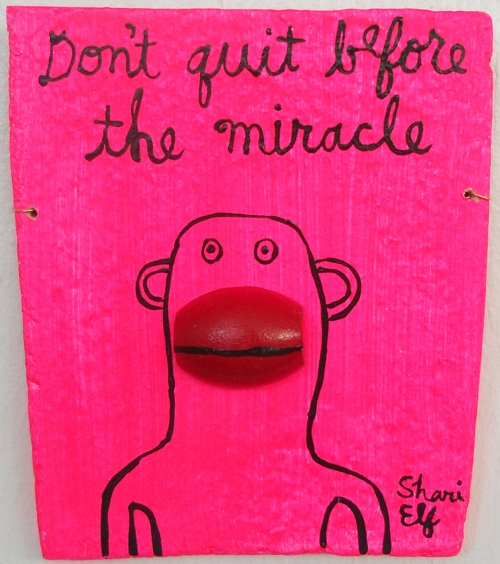 Don't quit before
the miracle
Shari
Elf